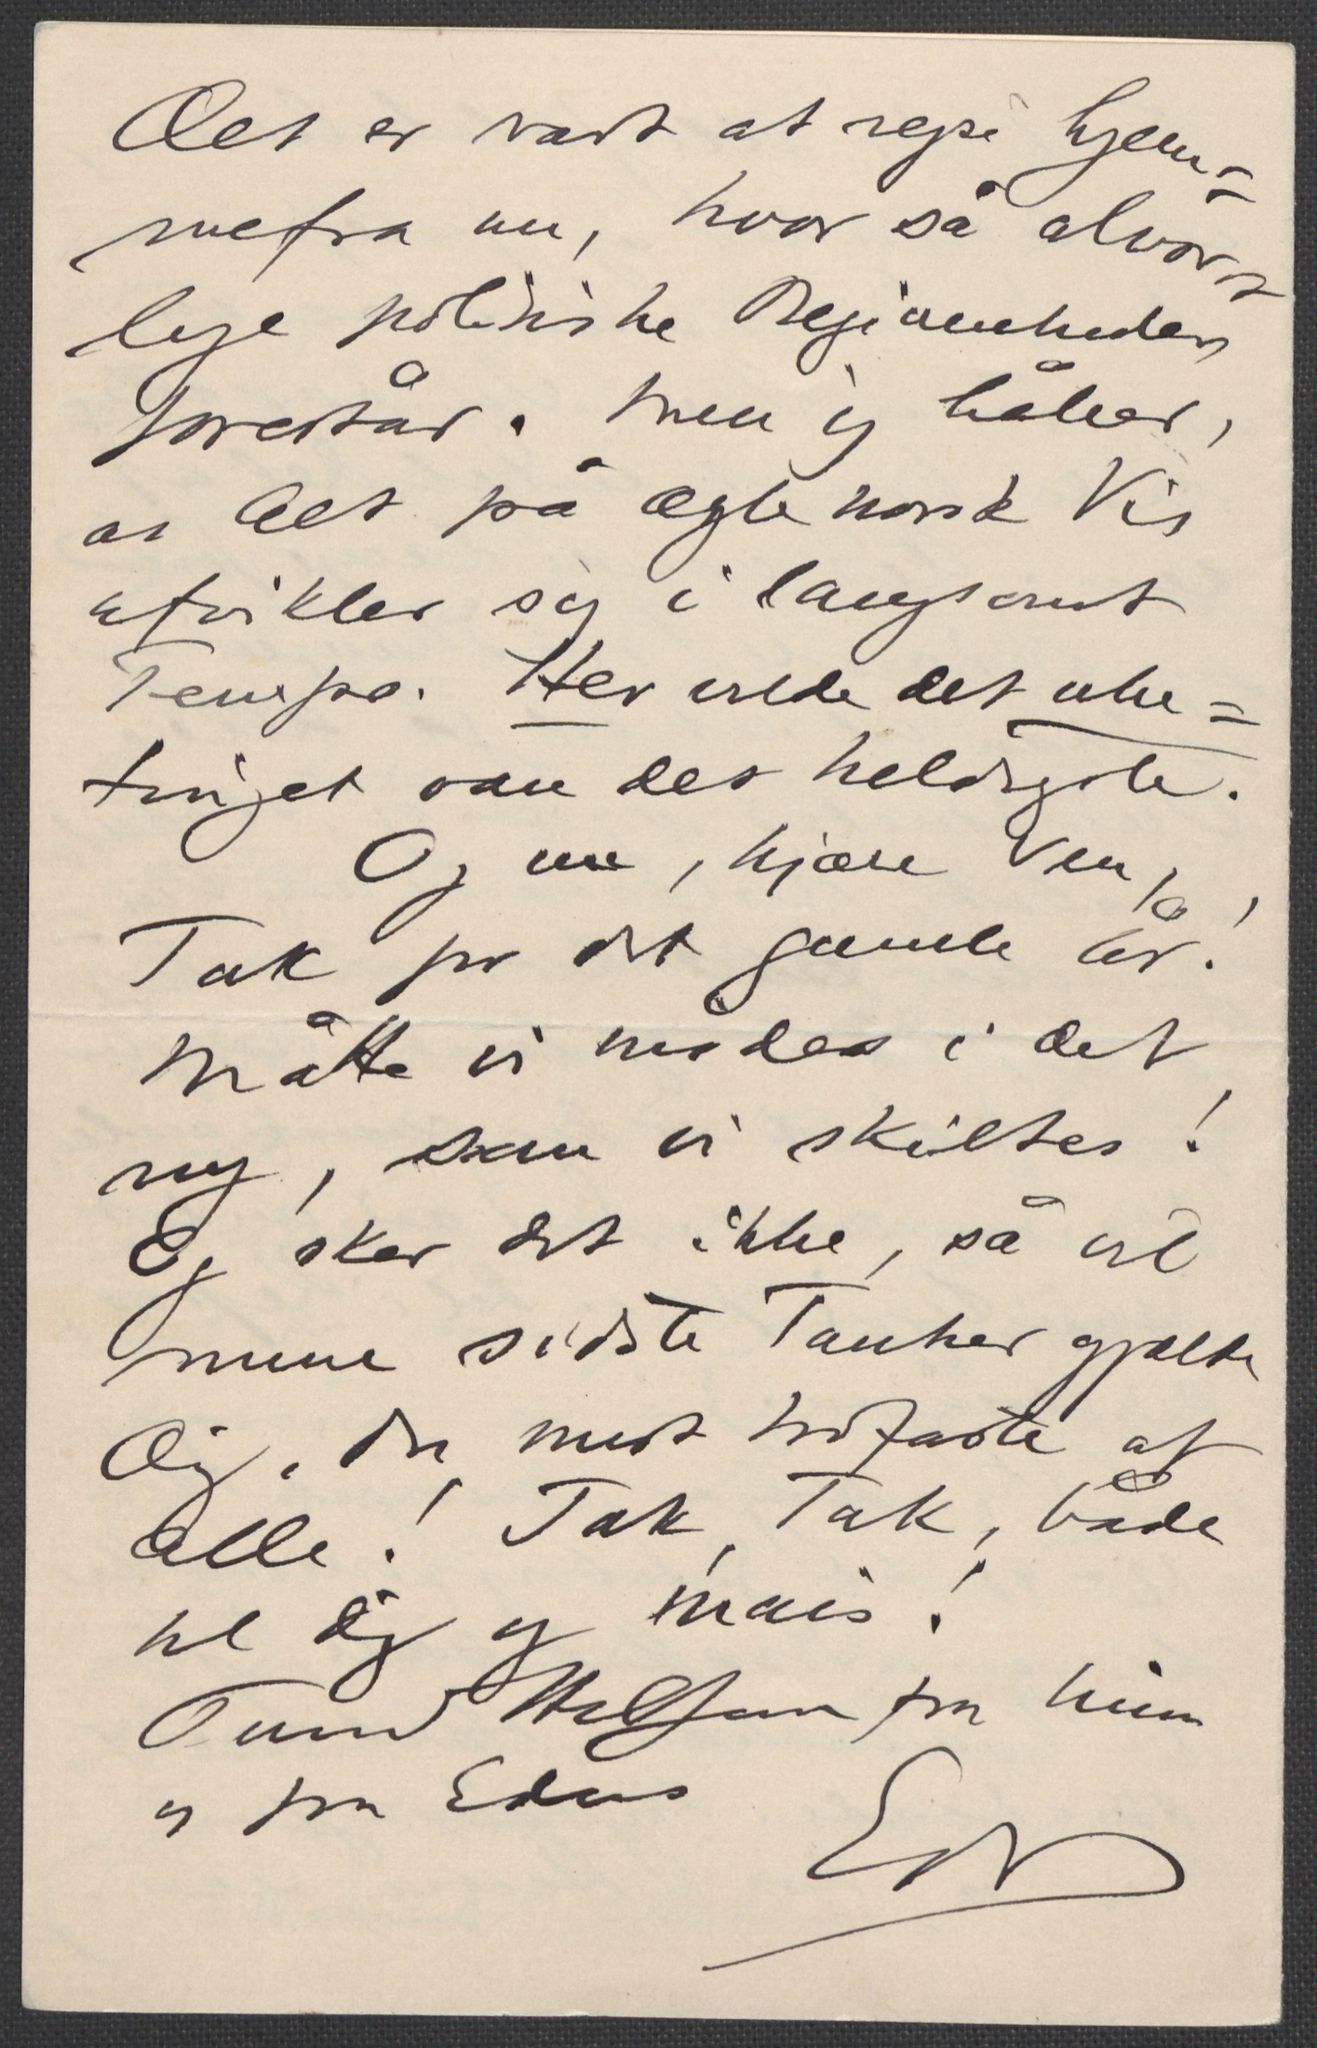 Det er rart at rejse hjem=
mefra nu, hvor så alvor=
lige politiske Begivenheder
forestår. Men jeg håber,
at Alt på ægte norsk Vis
utvikler sig i langsomt
Tempo. Her vilde det ube=
tinget være det heldigste.
Og nu, kjære Ven,
Tak for det gamle år!
Måtte vi mødes i det
ny, som vi skiltes!
Og sker det ikke, så vil
mine sidste Tanker gjælde
Dig, du mest trofaste af
alle! Tak, Tak, både
til dig og Mais!
Tusind Hilsener fra Nina
og fra Eders
Edv